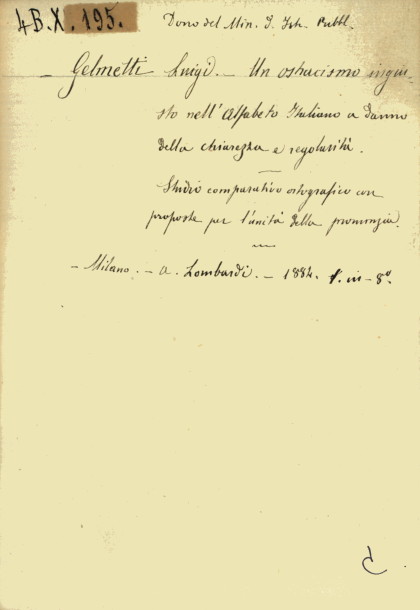 4B.X.195.
Dono del Min. I. Istr. Pubbl.
- Gelmetti Luigi. - Un ostracismo ingiu-
sto nell'Alfabeto Italiano a danno
della chiarezza e regolarità.
Studio comparativo ortografico con
proposte per l'unità della pronunzia.
- Milano. - A. Lombardi. - 1884. 1. in-8°.